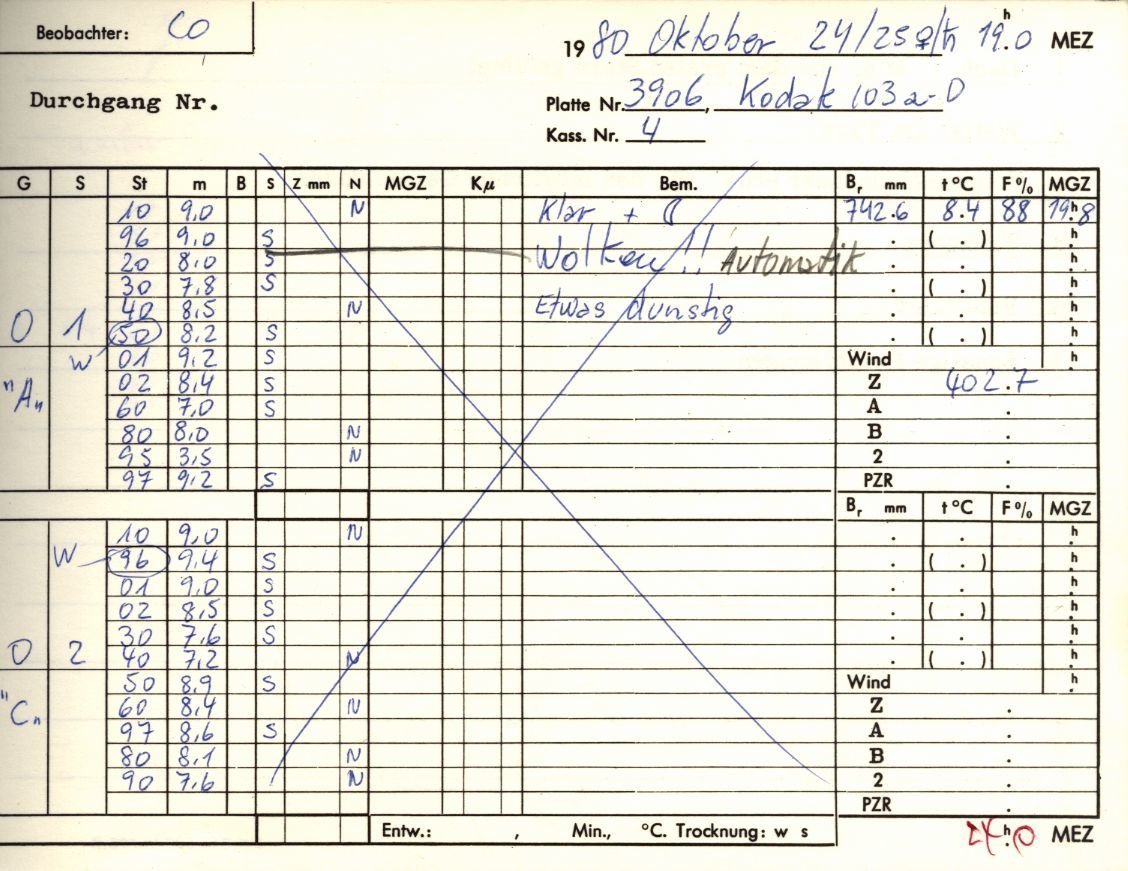 Beobachter: CO
19 80 Oktober 24/25 ♀/♄ 19.ʰ0 MEZ
Durchgang Nr.
Platte Nr. 3906, Kodak 103a-D
Kass. Nr. 4
G S St m B S Z mm N MGZ Kμ Bem. Br mm t°C F% MGZ
10 9,0 N Klar + ☾ 742.6 8.4 88 19.ʰ8
96 9,0 S . ( . ) h
20 8,0 S Wolken!! Automatik . . h
30 7,8 S . ( . ) h
40 8,5 N Etwas dunstig . . h
0 1 50 8,2 S . ( . ) h
W 01 9,2 S Wind h
"A" 02 8,4 S Z 402.7
60 7,0 S A .
80 8,0 N B .
95 3,5 N 2 .
97 9,2 S PZR
Br mm t°C F% MGZ
10 9,0 N . . h
W 96 9,4 S . ( . ) h
01 9,0 S . . h
02 8,5 S . ( . ) h
30 7,6 S . . h
0 2 40 7,2 N . ( . ) h
50 8,9 S Wind h
"C" 60 8,4 N Z .
97 8,6 S A .
80 8,1 N B .
90 7,6 N 2 .
PZR .
Entw.: , Min., °C. Trocknung: w s
24.ʰ0 MEZ